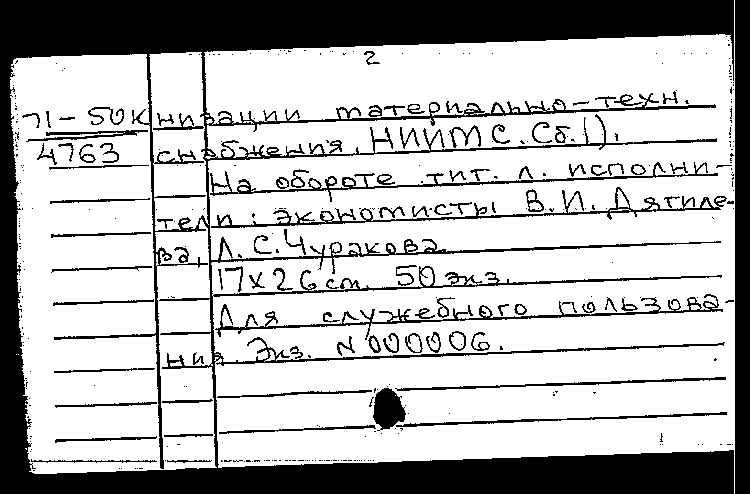 2
71-50к низации материально-техн.
4763 снабжения. НИИМС. Сб.1).
На обороте тит. л. исполни-
тели: экономисты В.И. Дятиле-
ва, Л.С. Чуракова.
17x26 см. 50 экз.
Для служебного пользова-
ния. Экз. N 000006.